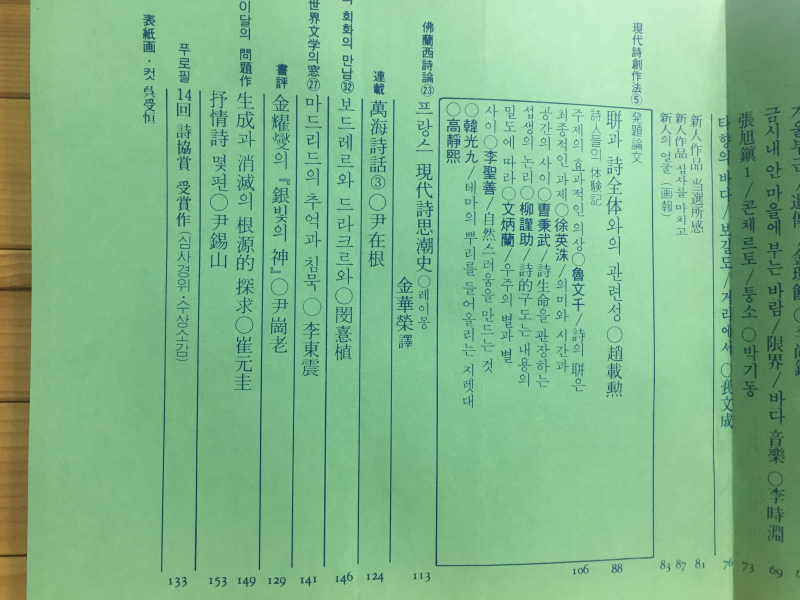 금시내 안 마을에 부는 바람/限界/바다 音樂 ○李時淵 69
張旭鎭 1/콘체르토/퉁소 ○박기동 73
타향의 바다/보길도/거리에서 ○裵文成 76
新人作品 当選所感 81
新人作品 심사를 마치고 87
新人의 얼굴 (画報) 83
現代詩創作法⑤
発題論文
聠과 詩全体와의 관련성 ○趙載勲 88
詩人들의 体験記 106
주제의 효과적인 의상○魯文千/詩의 聠은
최종적인 과제○徐英洙/의미와 시간과
공간의 사이○曺秉武/詩生命을 관장하는
섭생의 논리○柳謹助/詩的 子도는 내용의
밀도에 따라○文炳蘭/우주의 별과 별
사이○李聖善/自然스러움을 만드는 것
○韓光九/테마의 뿌리를 들어올리는 지렛대
○高靜熙
佛蘭西詩論㉓
프랑스 現代詩思潮史○레이몽
金華榮 譯 113
連載
萬海詩話③○尹在根 124
회화의 만남㉜
보드레르와 드라크르와○閔憙植 146
世界文学의窓㉗
마드리드의 추억과 침묵 ○李東震 141
書評
金耀燮의 『銀빛의 神』○尹崗老 129
이달의 問題作
生成과 消滅의 根源的 探求○崔元圭 149
抒情詩 몇편○尹錫山 153
푸로필
14回 詩協賞 受賞作 (심사경위·수상소감) 133
表紙画·컷 吳受恒